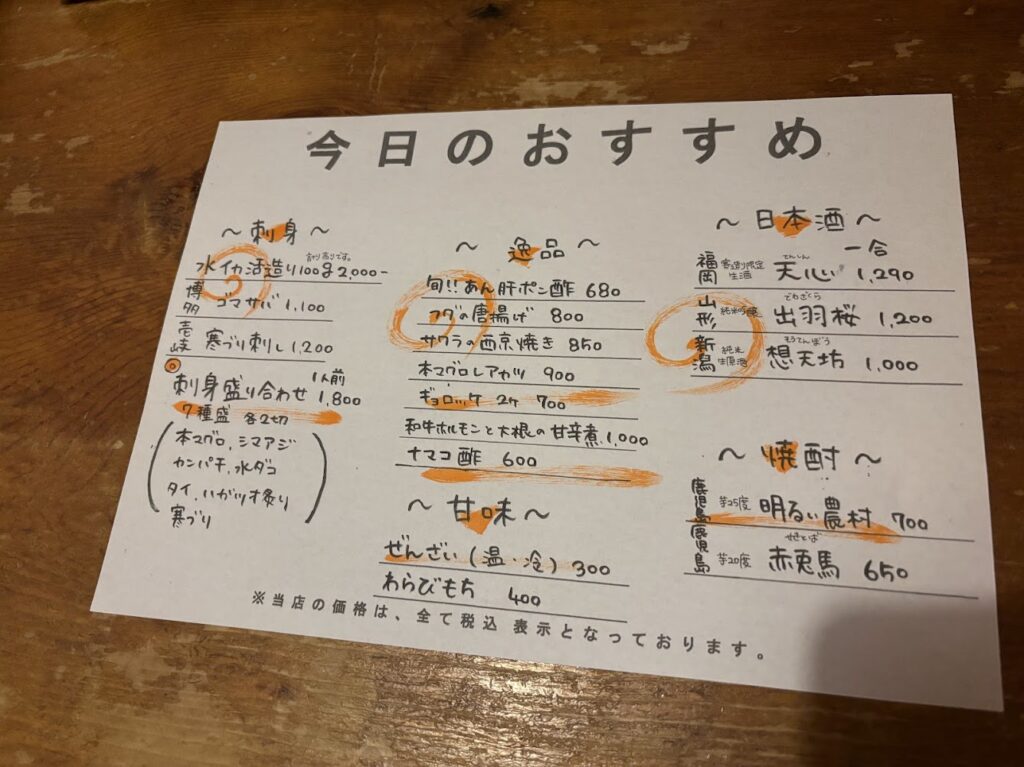 今日のおすすめ
～刺身～
割り売りです。
水イカ活造り100g 2,000-
博多 ゴマサバ 1,100
壱岐 寒ぶり刺し 1,200
刺身盛り合わせ 1人前 1,800
7種盛 各2切
(本マグロ、シマアジ
カンパチ、水ダコ
タイ、ハガツオ炙り
寒ぶり)
～逸品～
旬!! あん肝ポン酢 680
フグの唐揚げ 800
サワラの西京焼き 850
本マグロレアカツ 900
ギョロッケ 2ケ 700
和牛ホルモンと大根の甘辛煮 1,000
ナマコ酢 600
～甘味～
ぜんざい(温・冷) 300
わらびもち 400
～日本酒～
一合
てんしん
福岡 寒造り限定生酒 天心 1,290
でわざくら
山形 純米吟醸 出羽桜 1,200
そうてんぼう
新潟 純米生原酒 想天坊 1,000
～焼酎～
鹿児島 芋25度 明るい農村 700
せきとば
鹿児島 芋20度 赤兎馬 650
※当店の価格は、全て税込 表示となっております。